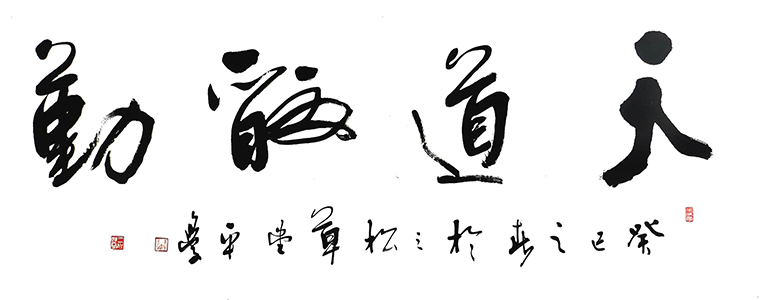 天道酬勤
癸巳之春於三松草堂平